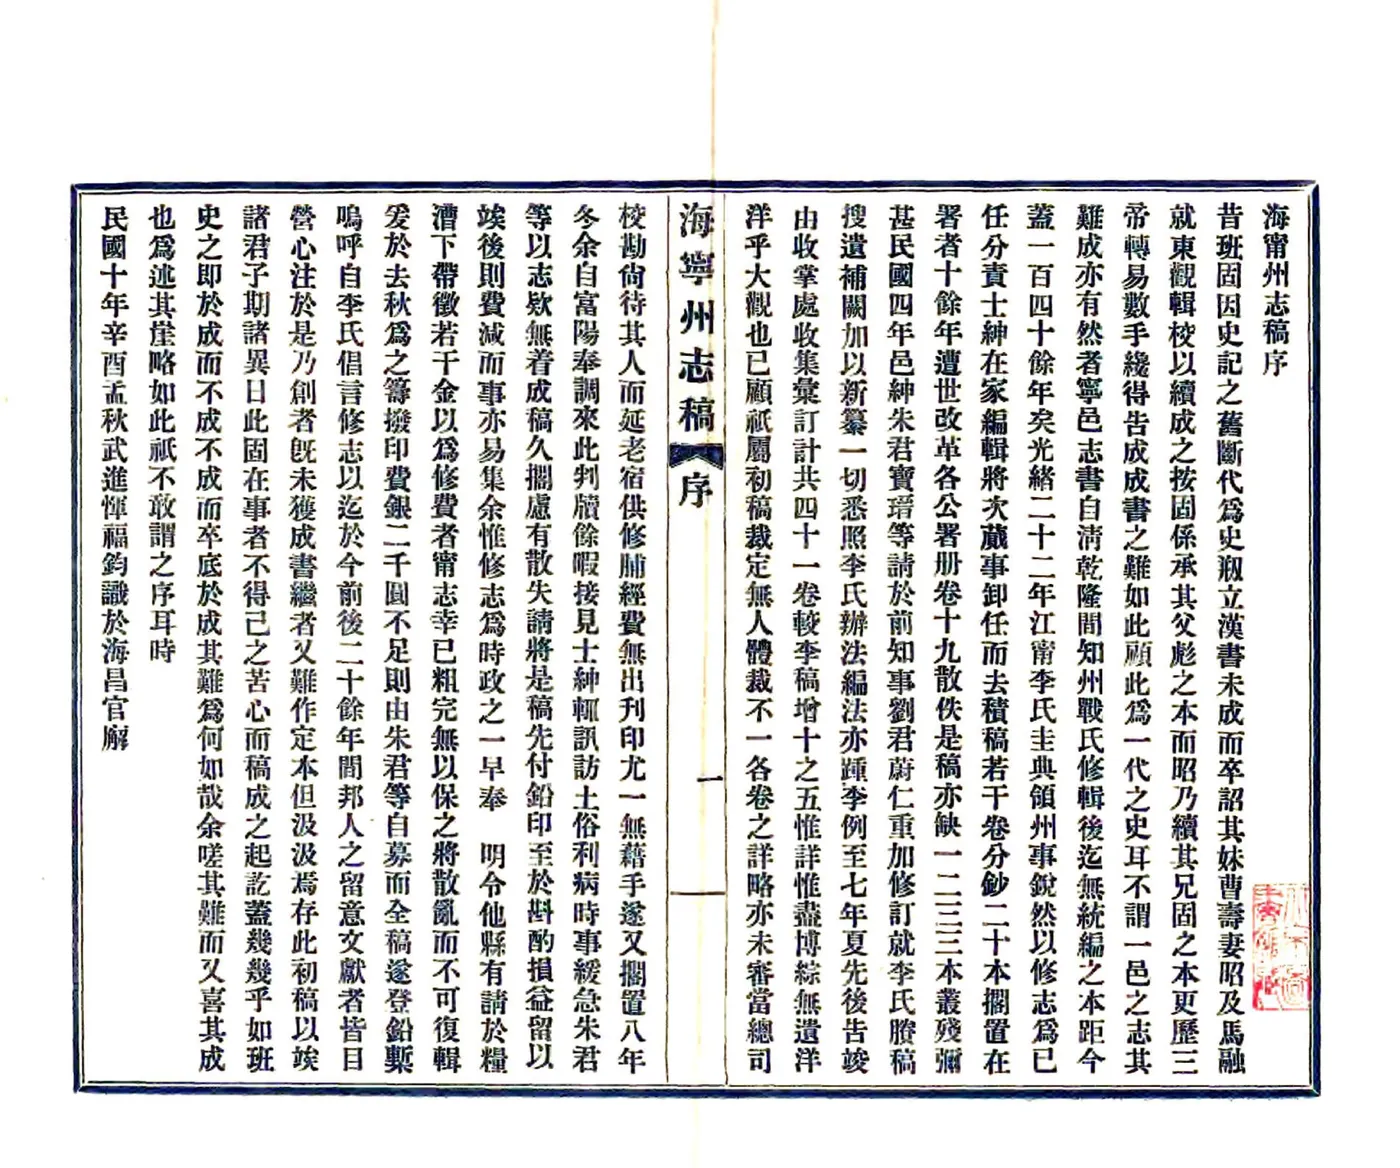 海甯州志稿序
昔班固因史記之舊斷代爲史剏立漢書未成而卒詔其妹曹壽妻昭及馬融
就東觀輯校以續成之按固係承其父彪之本而昭乃續其兄固之本更歷三
帝轉易數手纔得告成成書之難如此顧此爲一代之史耳不謂一邑之志其
難成亦有然者寧邑志書自清乾隆間知州戰氏修輯後迄無統編之本距今
蓋一百四十餘年矣光緒二十二年江甯李氏圭典領州事銳然以修志爲已
任分責士紳在家編輯將次蕆事卸任而去積稿若干卷分鈔二十本擱置在
署者十餘年遭世改革各公署册卷十九散佚是稿亦缺一二三三本叢殘彌
甚民國四年邑紳朱君寶瑨等請於前知事劉君蔚仁重加修訂就李氏賸稿
搜遺補闕加以新纂一切悉照李氏辦法編法亦踵李例至七年夏先後告竣
由收掌處收集彙訂計共四十一卷較李稿增十之五惟詳惟盡博綜無遺洋
洋乎大觀也已顧祇屬初稿裁定無人體裁不一各卷之詳略亦未審當總司
海寧州志稿
序
一
校勘尙待其人而延老宿供修脯經費無出刊印尤一無藉手遂又擱置八年
冬余自富陽奉調來此判牘餘暇接見士紳輒訊訪土俗利病時事緩急朱君
等以志欵無着成稿久擱慮有散失請將是稿先付鉛印至於斟酌損益留以
竢後則費減而事亦易集余惟修志爲時政之一早奉　明令他縣有請於糧
漕下帶徵若干金以爲修費者甯志幸已粗完無以保之將散亂而不可復輯
爰於去秋爲之籌撥印費銀二千圓不足則由朱君等自募而全稿遂登鉛槧
嗚呼自李氏倡言修志以迄於今前後二十餘年間邦人之留意文獻者皆目
營心注於是乃創者旣未獲成書繼者又難作定本但汲汲焉存此初稿以竢
諸君子期諸異日此固在事者不得已之苦心而稿成之起訖蓋幾幾乎如班
史之卽於成而不成不成而卒底於成其難爲何如哉余嗟其難而又喜其成
也爲述其崖略如此祇不敢謂之序耳時
民國十年辛酉孟秋武進惲福鈞識於海昌官廨